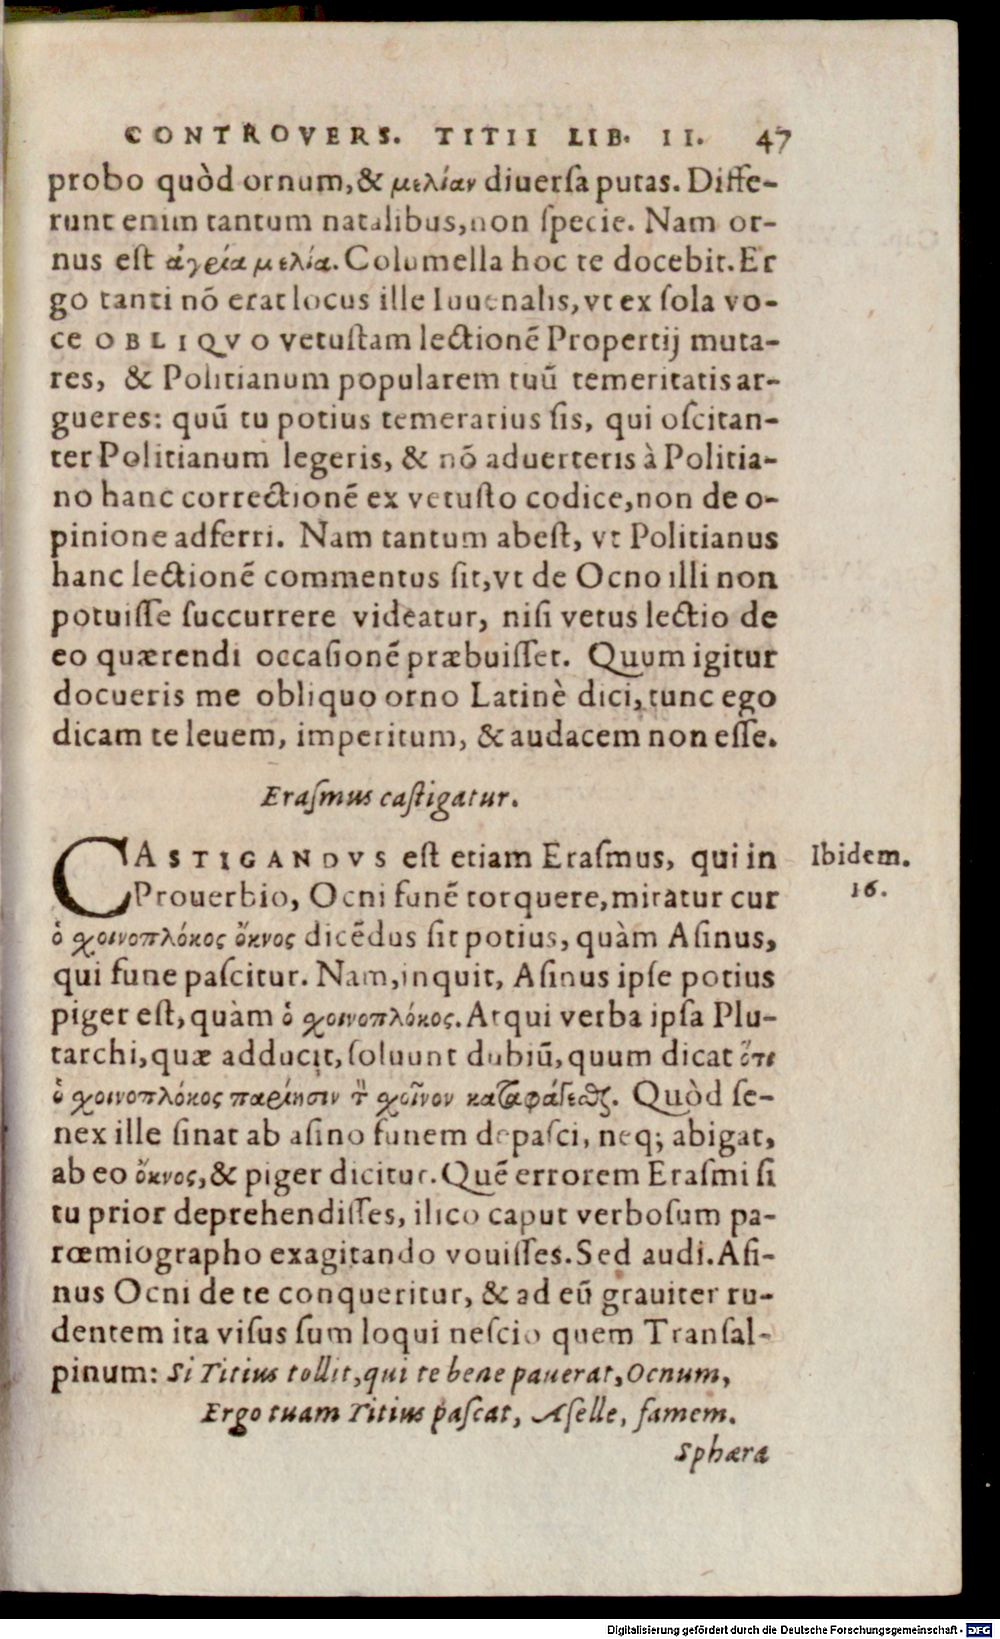 CONTROVERS. TITII LIB. II. 47
probo quòd ornum, & μελίαν diuerſa putas. Diffe-
runt enim tantum natalibus, non ſpecie. Nam or-
nus eſt ἀγρία μελία. Columella hoc te docebit. Er
go tanti nō erat locus ille Iuuenalis, vt ex ſola vo-
ce OBLIQVO vetuſtam lectionē Propertij muta-
res, & Politianum popularem tuū temeritatis ar-
gueres: quū tu potius temerarius ſis, qui oſcitan-
ter Politianum legeris, & nō aduerteris à Politia-
no hanc correctionē ex vetuſto codice, non de o-
pinione adferri. Nam tantum abeſt, vt Politianus
hanc lectionē commentus ſit, vt de Ocno illi non
potuiſſe ſuccurrere videatur, niſi vetus lectio de
eo quærendi occaſionē præbuiſſet. Quum igitur
docueris me obliquo orno Latinè dici, tunc ego
dicam te leuem, imperitum, & audacem non eſſe.
Eraſmus caſtigatur.
CASTIGANDVS eſt etiam Eraſmus, qui in
Prouerbio, Ocni funē torquere, miratur cur
ὁ χοινοπλόκος ὄκνος dicēdus ſit potius, quàm Aſinus,
qui fune paſcitur. Nam, inquit, Aſinus ipſe potius
piger eſt, quàm ὁ χοινοπλόκος. Atqui verba ipſa Plu-
tarchi, quæ adducit, ſoluunt dubiū, quum dicat ὅτι
ὁ χοινοπλόκος παρίησιν τ χοῖνον καταφάγεσθαι. Quòd ſe-
nex ille ſinat ab aſino funem depaſci, neq; abigat,
ab eo ὄκνος, & piger dicitur. Quē errorem Eraſmi ſi
tu prior deprehendiſſes, ilico caput verboſum pa-
rœmiographo exagitando vouiſſes. Sed audi. Aſi-
nus Ocni de te conqueritur, & ad eū grauiter ru-
dentem ita viſus ſum loqui neſcio quem Tranſal-
pinum: Si Titius tollit, qui te bene pauerat, Ocnum,
Ergo tuam Titius paſcat, Aſelle, famem.
Sphæra
Ibidem.
16.
Digitalisierung gefördert durch die Deutsche Forschungsgemeinschaft - DFG